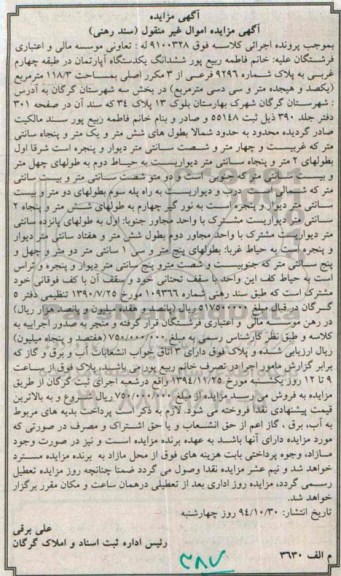 آگهی مزایده
آگهی مزایده اموال غیر منقول (سند رهنی)
بموجب پرونده اجرائی کلاسه فوق ۹۱۰۰۳۲۸ له : تعاونی موسسه مالی و اعتباری
فرشتگان علیه: خانم فاطمه ربیع پور ششدانگ یکدستگاه آپارتمان در طبقه چهارم
غربی به پلاک شماره ۹۲۹۶ فرعی از ۳ مکرر اصلی بمساحت ۱۱۸/۳ مترمربع
(یکصد و هیجده متر و سی دسی مترمربع) در بخش سه شهرستان گرگان به آدرس
: شهرستان گرگان شهرک بهارستان بلوک ۱۳ پلاک ۳۴ که سند آن در صفحه ۳۰۱
دفتر جلد ۳۹۰ ذیل ثبت ۵۵۱۴۸ و صادر و بنام خانم فاطمه ربیع پور سند مالکیت
صادر گردیده محدود به حدود شمالا بطول های شش متر و یک متر و پنجاه سانتی
متر که غربیست و چهار متر و شصت سانتی متر دیوار و پنجره است شرقا اول
بطولهای ۲ متر و پنجاه سانتی متر دیواریست به حیاط دوم به طولهای چهل متر
و بیست سانتی متر که جنوبی است و دو متر شصت سانتی متر و بیست سانتی
متر که شمالی است درب و دیواریست به راه پله سوم بطولهای دو متر و بیست
سانتی متر دیوار و پنجره است به نور گیر چهارم به طولهای شش متر و پنجاه ۲
سانتی متر دیواریست مشترک با واحد مجاور جنوبا: اول به طولهای پانزده سانتی
متر دیواریست مشترک با واحد مجاور دوم بطول شش متر و هفتاد سانتی متر دیوار
و پنجره است به حیاط غربا: بطولهای پنج متر و سی ۱ سانتی متر دو متر و چهل و
پنج سانتی متر که جنوبیست و شصت متر و پنج سانتی متر دیوار و پنجره و تراس
است به حیاط کف این واحد با سقف تحتانی خود و سقف آن با کف فوقانی خود
مشترک است که طبق سند رهنی شماره ۱۰۹۳۶۶ مورخ ۱۳۹۰/۷/۲۵ تنظیمی دفتر ۵
گرگان در قبال مبلغ ۵۱۷۵۰۰۰۰۰ ریال (پانصد و هفده میلیون و پانصد هزار ریال)
در رهن موسسه مالی و اعتباری فرشتگان قرار گرفته و منجر به صدور اجراییه به
کلاسه و طبق نظر کارشناس رسمی به مبلغ ۷۵۰/۰۰۰/۰۰۰ (هفتصد و پنجاه میلیون)
ریال ارزیابی شده و پلاک فوق دارای ۳ اتاق خواب انشعابات آب و برق و گاز که
برابر گزارش مامور اجرا در تصرف خانم ربیع پور می باشد، پلاک فوق از ساعت
۹ تا ۱۲ روز یکشنبه مورخ ۱۳۹۴/۱۱/۲۵ واقع در شعبه اجرای ثبت گرگان از طریق
مزایده به فروش می رسد مزایده از مبلغ ۷۵۰/۰۰۰/۰۰۰ ریال شروع و به بالاترین
قیمت پیشنهادی نقدا فروخته می شود. لازم به ذکر است پرداخت بدهی های مربوط
به آب، برق ، گاز اعم از حق انشعاب و یا حق اشتراک و مصرف در صورتی که
مورد مزایده دارای آنها باشد به عهده برنده مزایده است و نیز در صورت وجود
مازاد، وجوه پرداختی بابت هزینه های فوق از محل مازاد به برنده مزایده مسترد
خواهد شد و نیم عشر مزایده نقدا وصول می گردد ضمنا چنانچه روز مزایده تعطیل
رسمی گردد، مزایده روز اداری بعد از تعطیلی درهمان ساعت و مکان مقرر برگزار
خواهد شد.
تاریخ انتشار: ۹۴/۱۰/۳۰ روز چهارشنبه
علی برقی
رئیس اداره ثبت اسناد و املاک گرگان
م الف ۳۶۳۰